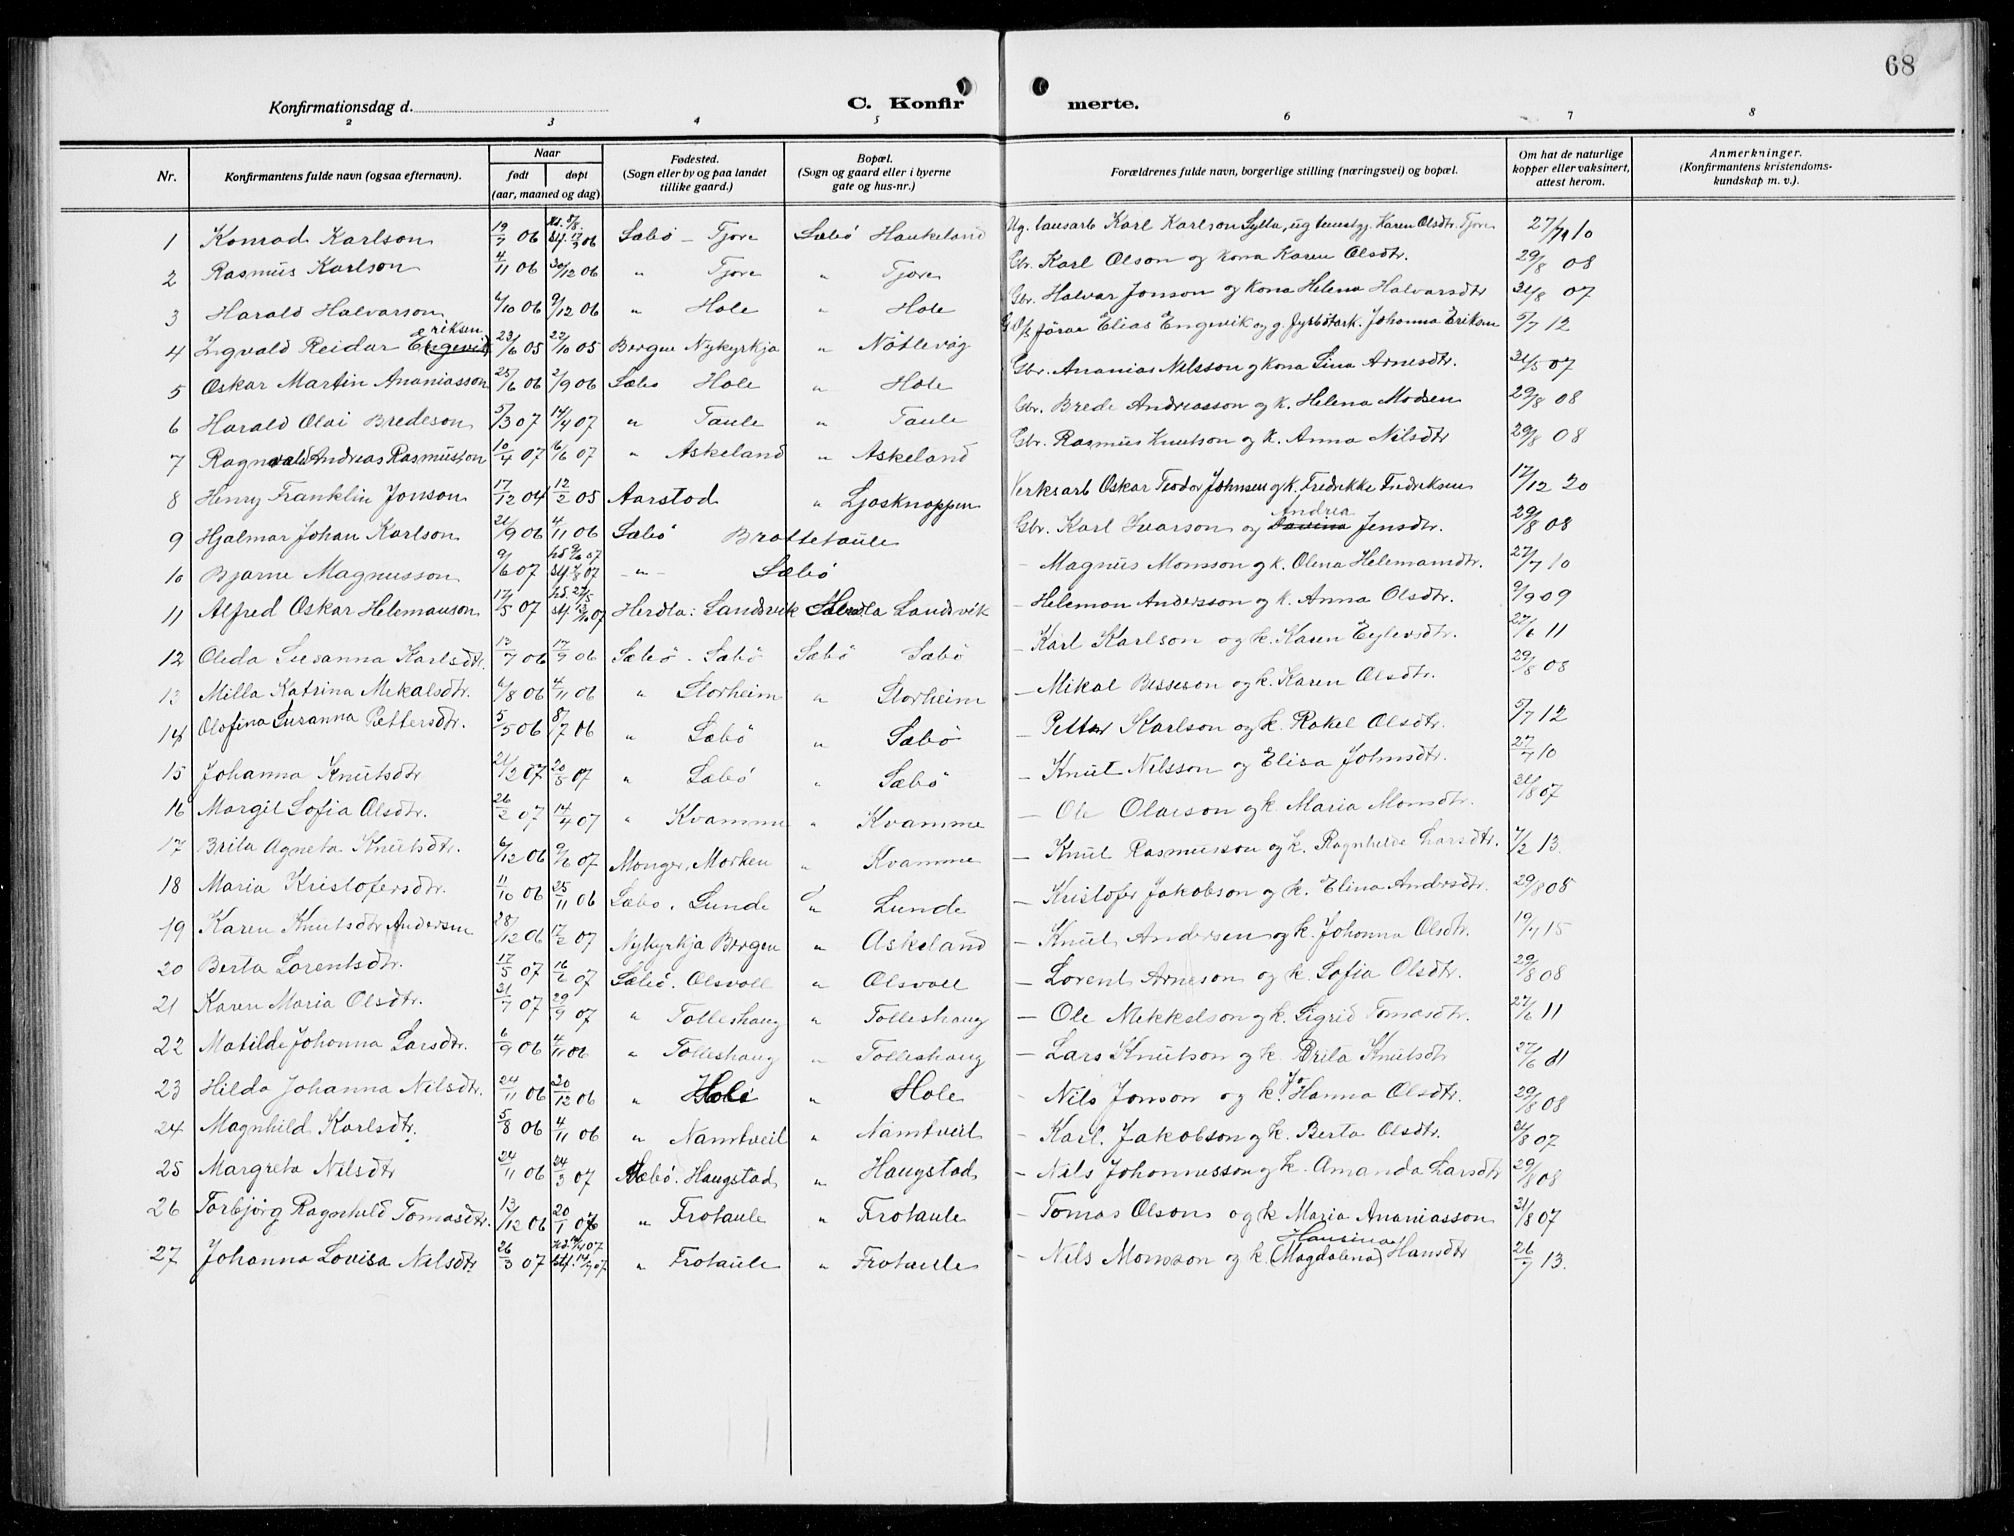 68
Konfirmationsdag d.
C. Konfir merte.
2 3 4 5 6 7 8
Nr.
Konfirmantens fulde navn (ogsaa efternavn).
Naar
født
døpt
(aar, maaned og dag)
Fødested.
(Sogn eller by og paa landet
tillike gaard.)
Bopæl.
(Sogn og gaard eller i byerne
gate og hus-nr.)
Forældrenes fulde navn, borgerlige stilling (næringsvei) og bopæl.
Om hat de naturlige
kopper eller vaksinert,
attest herom.
Anmerkninger.
(Konfirmantens kristendoms-
kundskap m. v.).
1 Konrad Karlson 19/7 06 Sæbö - Tjore Sæbö Haukeland Ug. lausarb Karl Karlson Sylta, ug tenestgj. Karen Olsdtr. Tjore 27/7 10
2 Rasmus Karlson 4/11 06 30/12 06 " Tjore " Tjore Gbr. Karl Olson og kona Karen Olsdtr. 29/8 08
3 Harald Halvarson 6/10 06 9/12 06 " Hole " Hole Gbr. Halvar Jonson og kona Helena Halvarsdtr 31/8 07
4 Ingvald Reidar Engevik Eriksen 23/6 05 22/10 05 Bergen Nykyrkja " Nötlevåg förar Elias Engevik og g. Johanna Eriksen 5/7 12
5 Oskar Martin Ananiasson 25/6 06 2/9 06 Sæbö Hole " Hole Gbr. Ananias Nilsson og kona Lina Arnesdtr. 31/5 07
6 Harald Olai Bredeson 5/3 07 14/4 07 " Taule " Taule Gbr. Brede Andreasson og k. Helena Modsen 29/8 08
7 Ragnvald Andreas Rasmusson 10/4 07 6/6 07 " Askeland " Askeland Gbr. Rasmus Knutson og k. Anna Nilsdtr 29/8 08
8 Henry Franklin Jonson 17/12 04 12/2 05 Aarstad " Ljosknappen Verksarb Oskar Teodor Johnsen og k. Fredrikke Fredriksen 17/12 20
9 Hjalmar Johan Karlson 21/9 06 4/11 06 Sæbö Brattetaule Gbr. Karl Ivarson og Andrea Jensdtr. 29/8 08
10 Bjarne Magnusson 9/6 07 - " - Sæbö - Magnus Monsson og k. Olena Helemansdtr. 27/7 10
11 Alfred Oskar Helemanson 17/5 07 Herdla: Landsvik Herdla Landsvik - Heleman Andersson og k. Anna Olsdtr. 9/9 09
12 Oleda Susanna Karlsdtr. 13/7 06 17/9 06 Sæbö. Sæbö Sæbö Sæbö - Karl Karlson og k. Karen Eylersdtr. 27/6 11
13 Milla Katrina Mekalsdtr. 6/8 06 4/11 06 " Storheim " Storheim - Mikal Besseson og k. Karen Olsdtr. 29/8 08
14 Olofina Susanna Pettersdtr. 5/5 06 8/7 06 " Sæbö " Sæbö - Petter Karlson og k. Rakel Olsdtr. 5/7 12
15 Johanna Knutsdtr 21/2 07 20/5 07 " Sæbö " Sæbö - Knut Nilsson og Elisa Johnsdtr. 27/7 10
16 Margit Sofia Olsdtr. 26/2 07 14/4 07 " Kvamme " Kvamme - Ole Olaison og k. Maria Monsdtr. 31/8 07
17 Brita Agneta Knutsdtr. 6/12 06 9/6 07 Manger, Morken " Kvamme - Knut Rasmusson og k. Ragnhilde Larsdtr. 7/2 13.
18 Maria Kristofersdtr. 11/10 06 25/11 06 Sæbö. Lunde " Lunde - Kristofer Jakobson og k. Elina Andersdtr. 29/8 08
19 Karen Knutsdtr Andersen 28/12 06 17/2 07 Nykyrkja Bergen " Askeland - Knut Andersen og k. Johanna Olsdtr. 19/7 15
20 Berta Lorentsdtr. 17/5 07 16/6 07 Sæbö. Olsvoll " Olsvoll - Lorent Arneson og k Sofia Olsdtr. 29/8 08
21 Karen Maria Olsdtr. 21/7 07 29/9 07 " Tolleshaug " Tolleshaug - Ole Mekkelson og k. Sigrid Tomasdtr. 27/6 11
22 Matilde Johanna Larsdtr. 6/9 06 4/11 06 " Tolleshaug " Tolleshaug - Lars Knutson og k. Brita Knutsdtr 27/6 11
23 Hilda Johanna Nilsdtr. 24/11 06 20/12 06 " Hole " Hole - Nils Jonson og k. Johanna Olsdtr. 29/8 08
24 Magnhild Karlsdtr. 5/8 06 4/11 06 " Namtveit " Namtveit - Karl Jakobson og k. Berta Olsdtr. 31/8 07
25 Margreta Nilsdtr 24/11 06 24/3 07 Sæbö. Haugstad " Haugstad - Nils Johannesson og k. Amanda Larsdtr 29/8 08
26 Torbjörg Ragnhild Tomasdtr. 13/12 06 20/1 07 " Frotaule " Frotaule - Tomas Olson og k Maria Ananiasson 31/8 07
27 Johanna Lovisa Nilsdtr. 26/3 07 " Frotaule " Frotaule - Nils Monsson og k. Hansina (Magdalena) Hansdtr 26/7 13.